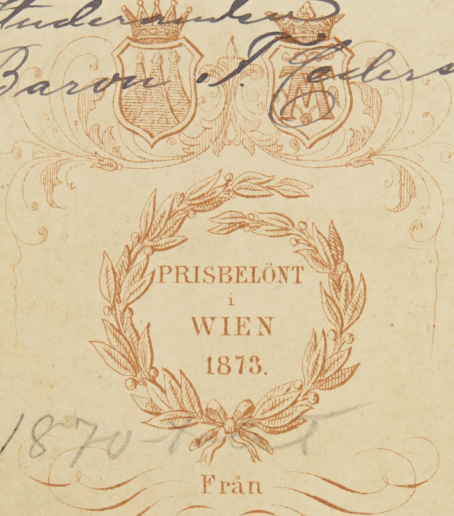 Studeranden
Baron T. Ceders
M
PRISBELÖNT
i
WIEN
1873.
1870-talet
Från